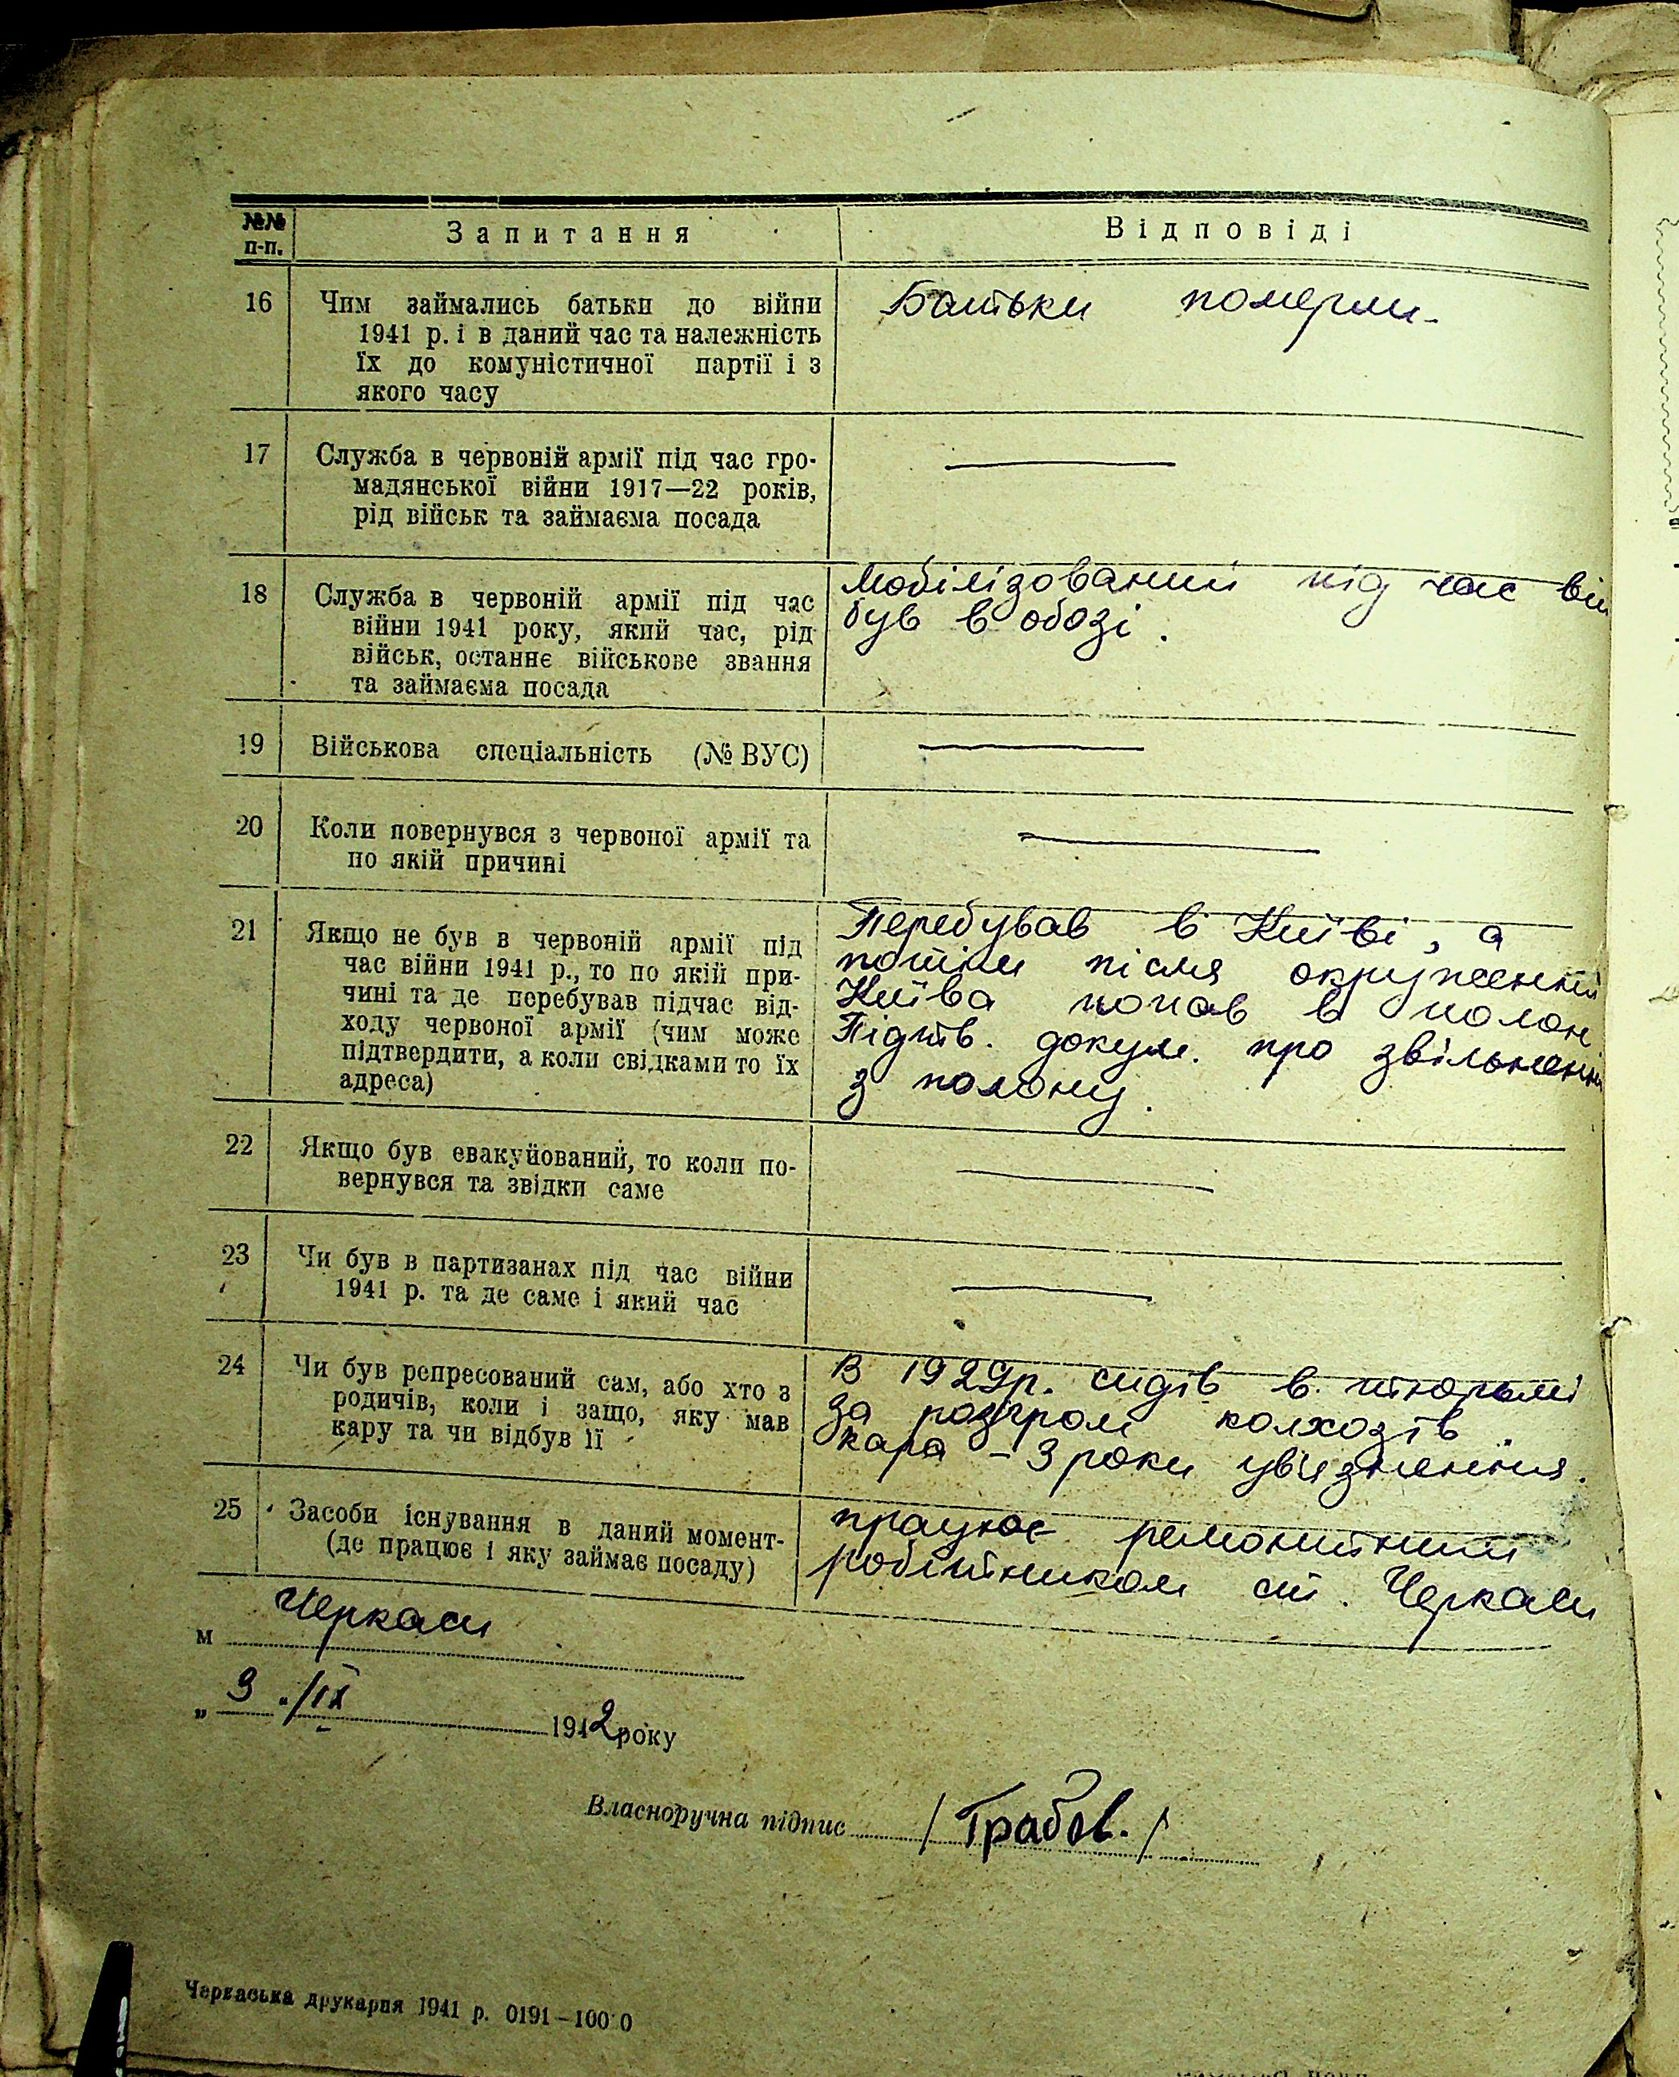 №№ п-п.
Запитання
Відповіді
16
Чим займались батьки до війни
1941 р. і в даний час та належність
їх до комуністичної партії і з
якого часу
Батьки померли.
17
Служба в червоній армії під час гро-
мадянської війни 1917—22 років,
рід військ та займаєма посада
18
Служба в червоній армії під час
війни 1941 року, який час, рід
військ, останнє військове звання
та займаєма посада
Мобілізований під час вій
був в обозі.
19
Військова спеціальність (№ ВУС)
20
Коли повернувся з червоної армії та
по якій причині
21
Якщо не був в червоній армії під
час війни 1941 р., то по якій при-
чині та де перебував підчас від-
ходу червоної армії (чим може
підтвердити, а коли свідками то їх
адреса)
Перебував в Київі, а
потім після окруження
Київа попав в полон
Підтв. докум. про звільнення
з полону.
22
Якщо був евакуйований, то коли по-
вернувся та звідки саме
23
Чи був в партизанах під час війни
1941 р. та де саме і який час
24
Чи був репресований сам, або хто з
родичів, коли і защо, яку мав
кару та чи відбув її
В 1929р. сидів в тюрьмі
за розгром колхозів.
кара – 3 роки увязнення.
25
Засоби існування в даний момент-
(де працює і яку займає посаду)
працює ремонтним
робітником ст. Черкаси
м Черкаси
„ 3 “ /IX 1942 року
Власноручна підпис /Грабов./
Черкаська друкарня 1941 р. 0191–100 0